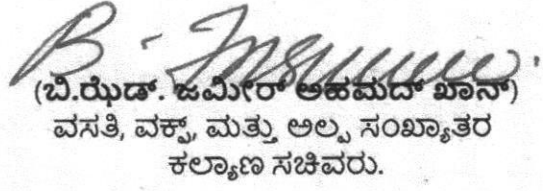 (ಬಿ.ಝೆಡ್. ಜಮೀರ್ ಅಹಮದ್ ಖಾನ್)
ವಸತಿ, ವಕ್ಫ್, ಮತ್ತು ಅಲ್ಪ ಸಂಖ್ಯಾತರ
ಕಲ್ಯಾಣ ಸಚಿವರು.